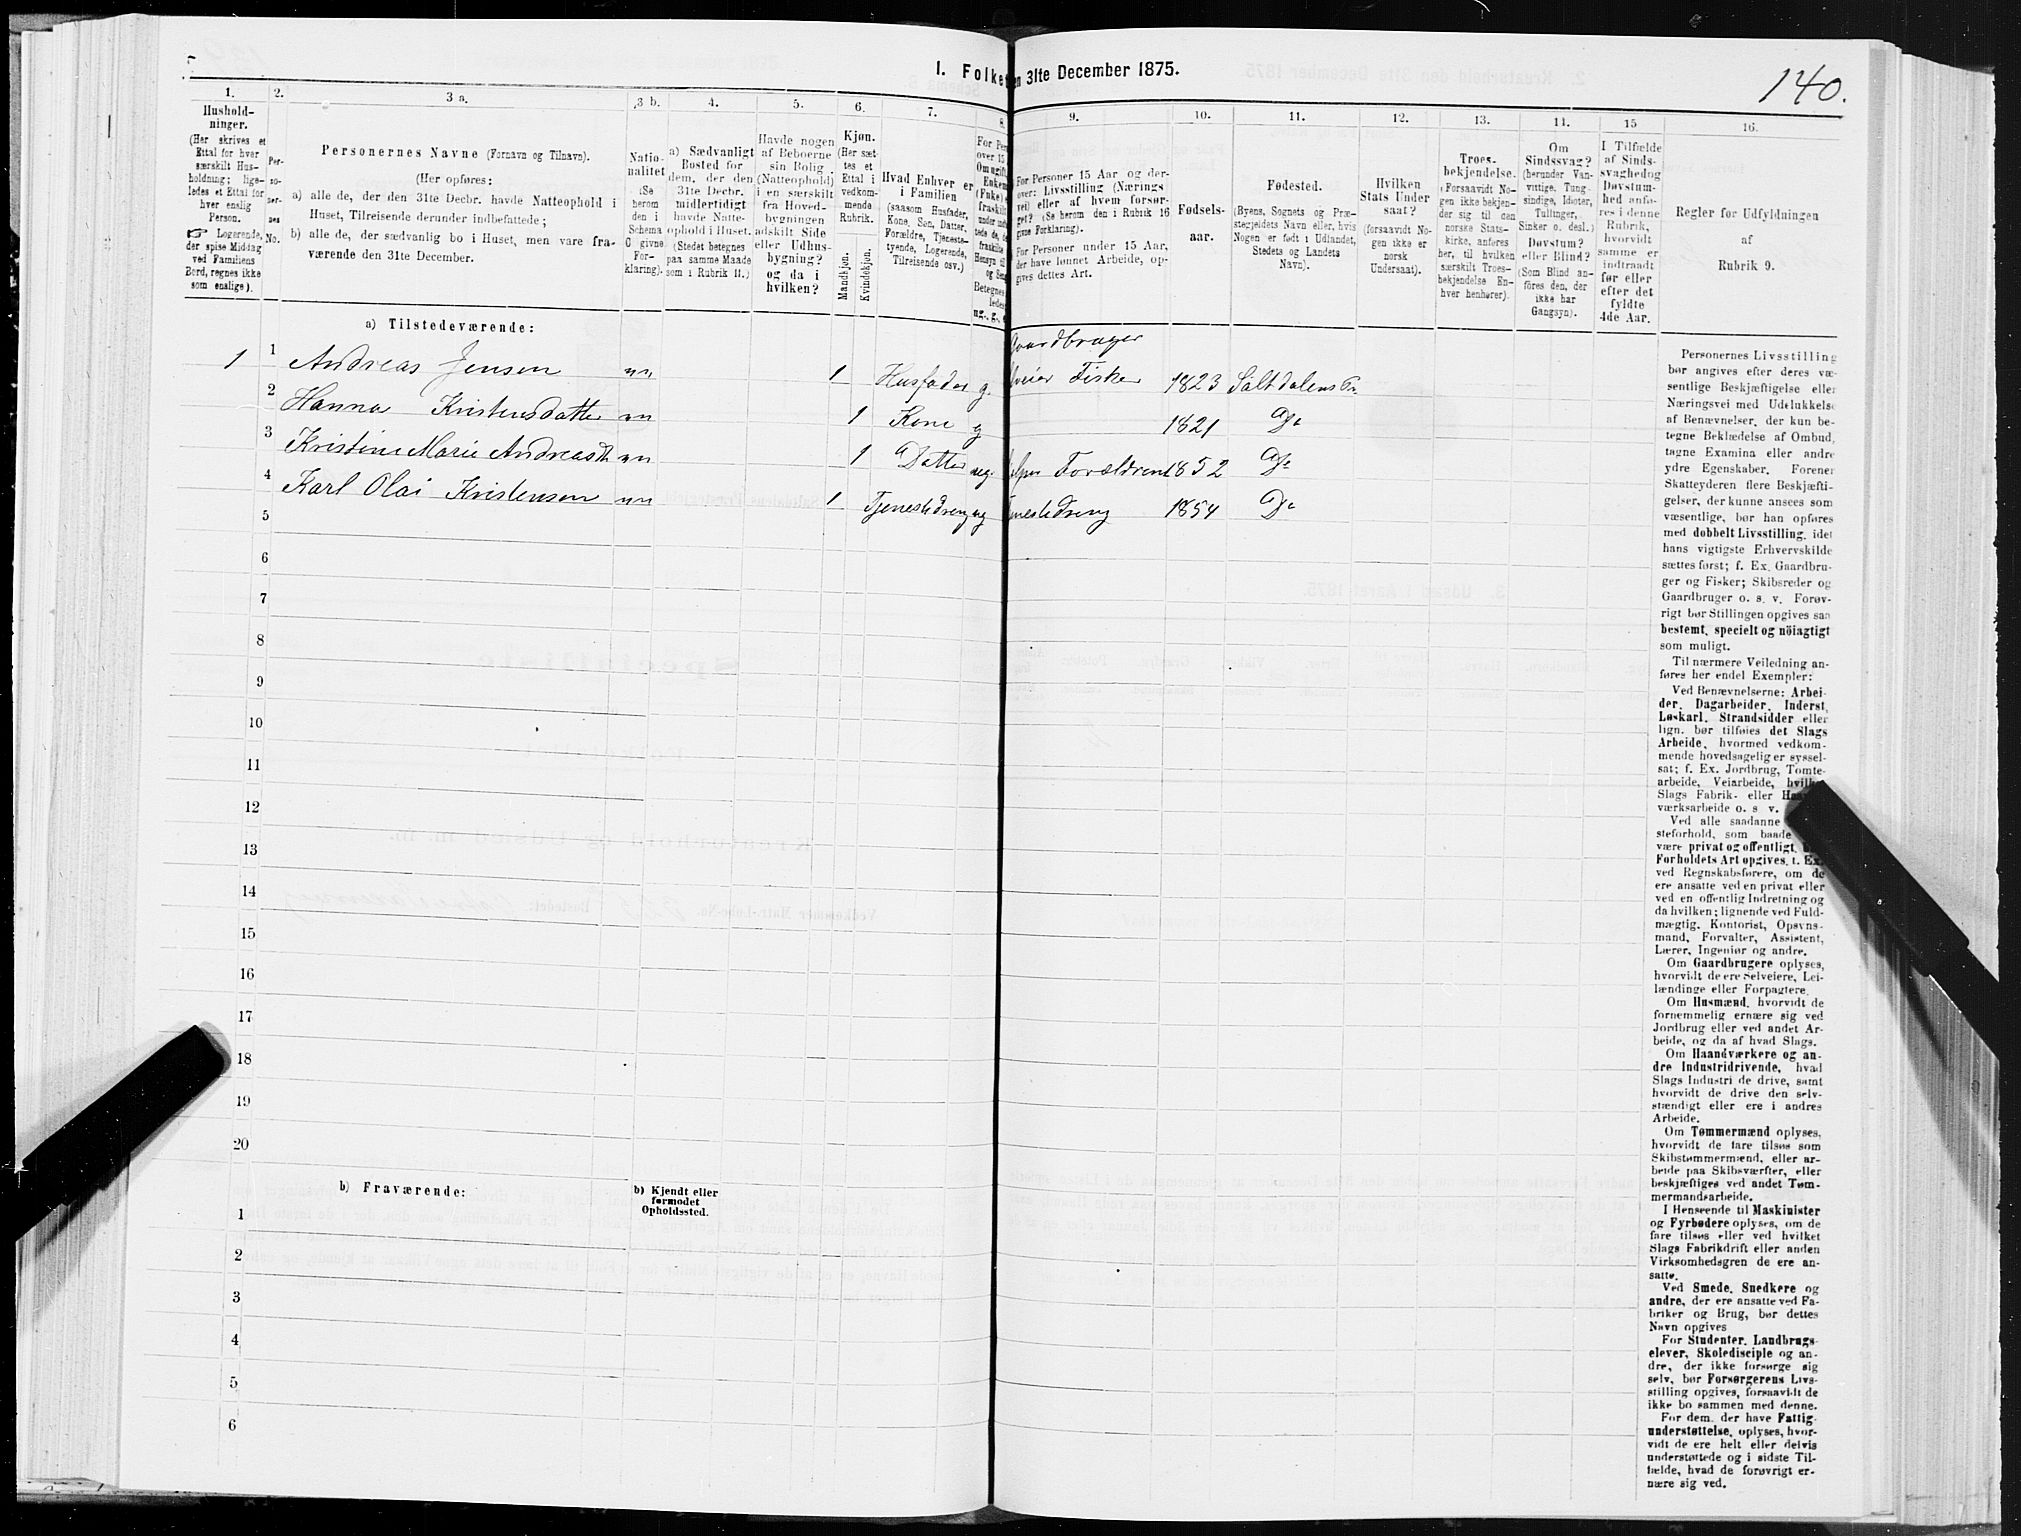 140.
1. Folke en 31te December 1875.
1. 2. 3 a. 3 b. 4. 5. 6. 7. 8. 9. 10. 11. 12. 13. 14. 15 16.
Hushold-
ninger.
(Her skrives et
Ettal for hver
særskilt Hus-
holdning; lige-
ledes et Ettal for
hver enslig
Person.
☞ Logerende,
der spise Middag
ved Familiens
Bord, regnes ikke
som enslige).
Per-
so-
ner-
nes
No.
Personernes Navne (Fornavn og Tilnavn).
(Her opføres:
a) alle de, der den 31te Decbr. havde Natteophold i
Huset, Tilreisende derunder indbefattede;
b) alle de, der sædvanlig bo i Huset, men vare fra-
værende den 31te December.
Natio-
nalitet
(Se
herom
den i
Schema
C givne
For-
klaring).
a) Sædvanligt
Bosted for
dem, der den
31te Decbr.
midlertidigt
havde Natte-
ophold i Huset.
(Stedet betegnes
paa samme Maade
som i Rubrik 11.)
Havde nogen
af Beboerne
sin Bolig
(Natteophold)
i en særskilt
fra Hoved-
bygningen
adskilt Side
eller Udhus-
bygning?
og da i
hvilken?
Kjøn.
(Her sæt-
tes et
Ettal i
vedkom-
mende
Rubrik.
Mandkjøn.
Kvindekjøn.
Hvad Enhver er
i Familien
(saasom Husfader,
Kone, Søn, Datter,
Forældre, Tjeneste-
tyende, Logerende,
Tilreisende osv.)
For Per
over 15
Om ugift,
Enkem
(Enke)
fraskilt
For Personer 15 Aar og der-
over: Livsstilling (Nærings
vei) eller af hvem forsør-
get? (Se herom den i Rubrik 16
givne Forklaring).
For Personer under 15 Aar,
der have lønnet Arbeide, op-
gives dettes Art.
Fødsels-
aar.
Fødested.
(Byens, Sognets og Præ-
stegjeldets Navn eller, hvis
Nogen er født i Udlandet,
Stedets og Landets
Navn).
Hvilken
Stats Under
saat?
(forsaavidt No-
gen ikke er
norsk
Undersaat).
Troes-
bekjendelse.
(Forsaavidt No-
gen ikke bekjen-
der sig til den
norske Stats-
kirke, anføres
her, til hvilken
særskilt Troes-
bekjendelse En-
hver henhører).
Om
Sindssvag?
(herunder Van-
vittige, Tung-
sindige, Idioter,
Tullinger,
Sinker o. desl.)
Døvstum?
eller Blind?
(Som Blind an-
føres den, der
ikke har
Gangsyn).
I Tilfælde
af Sinds-
svaghed og
Døvstum-
hed anfø-
res i denne
Rubrik,
hvorvidt
samme er
indtraadt
før eller
efter det
fyldte
4de Aar.
Regler for Udfyldningen
af
Rubrik 9.
a) Tilstedeværende:
Gaardbruger
1 1 Andreas Jensen nn 1 Husfader g. Fisker 1823 Saltdalens Pr.
2 Hanna Kristensdatter nn 1 Kone g 1821 Do
3 Kristine Marie Andreasdt nn 1 Datter ug. Forældrene 1852 Do
4 Karl Olai Kristensen nn 1 Tjenestedreng ug nestedreng 1854 Do
5
6
7
8
9
10
11
12
13
14
15
16
17
18
19
20
b) Fraværende:
b) Kjendt eller
formodet
Opholdssted.
1
2
3
4
5
6
Personernes Livsstilling
bør angives efter deres væ-
sentlige Beskjæftigelse eller
Næringsvei med Udelukkelse
af Benævnelser, der kun be-
tegne Beklædelse af Ombud,
tagne Examina eller andre
ydre Egenskaber. Forener
Skatteyderen flere Beskjæfti-
gelser, der kunne ansees som
væsentlige, bør han opføres
med dobbelt Livsstilling, idet
hans vigtigste Erhvervskilde
sættes først; f. Ex. Gaardbru-
ger og Fisker; Skibsreder og
Gaardbruger o. s. v. Forøv-
rigt bør Stillingen opgives saa
bestemt, specielt og nöiagtigt
som muligt.
Til nærmere Veiledning an-
føres her endel Exempler:
Ved Benævnelserne: Arbei-
der, Dagarbeider, Inderst,
Løskarl, Strandsidder eller
lign. bør tilføies det Slags
Arbeide, hvormed vedkom-
mende hovedsagelig er syssel-
sat; f. Ex. Jordbrug, Tomte-
arbeide, Veiarbeide, hvilket
Slags Fabrik- eller
værksarbeide o. s v.
Ved alle saadanne
steforhold, som baade
være privat og offentligt,
Forholdets Art opgives, t. Ex.
ved Regnskabsførere, om de
ere ansatte ved en privat eller
ved en offentlig Indretning og
da hvilken; lignende ved Fuld-
mægtig, Kontorist, Opsyns-
mand, Forvalter, Assistent,
Lærer, Ingeniør og andre.
Om Gaardbrugere oplyses,
hvorvidt de ere Selveiere, Lei-
lændinge eller Forpagtere.
Om Husmænd, hvorvidt de
fornemmelig ernære sig ved
Jordbrug eller ved andet Ar-
beide, og da af hvad Slags.
Om Haandværkere og an-
dre Industridrivende, hvad
Slags Industri de drive, samt
hvorvidt de drive den selv-
stændigt eller ere i andres
Arbeide.
Om Tømmermænd oplyses,
hvorvidt de fare tilsøs som
Skibstømmermænd, eller ar-
beide paa Skibsværfter, eller
beskjæftiges ved andet Tøm-
mermandsarbeide.
I Henseende til Maskinister
og Fyrbødere oplyses, om de
fare tilsøs eller ved hvilket
Slags Fabrikdrift eller anden
Virksomhedsgren de ere an-
satte.
Ved Smede, Snedkere og
andre, der ere ansatte ved Fa-
briker og Brug, bør dettes
Navn opgives
For Studenter, Landbrugs-
elever, Skoledisciple og an-
dre, der ikke forsørge sig
selv, bør Forsørgerens Livs-
stilling opgives, forsaavidt de
ikke bo sammen med denne.
For dem, der have Fattig-
understøttelse, oplyses, hvor-
vidt de ere helt eller delvis
understøttede og i sidste Til-
fælde, hvad de forøvrigt er-
nære sig ved.